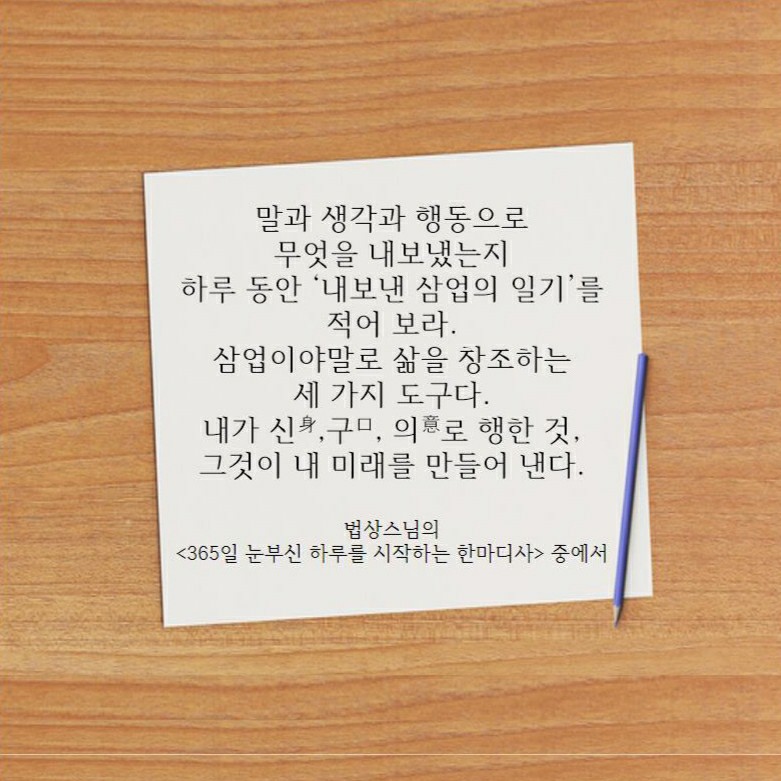 말과 생각과 행동으로
무엇을 내보냈는지
하루 동안 ‘내보낸 삼업의 일기’를
적어 보라.
삼업이야말로 삶을 창조하는
세 가지 도구다.
내가 신身,구口, 의意로 행한 것,
그것이 내 미래를 만들어 낸다.
법상스님의
<365일 눈부신 하루를 시작하는 한마디사> 중에서